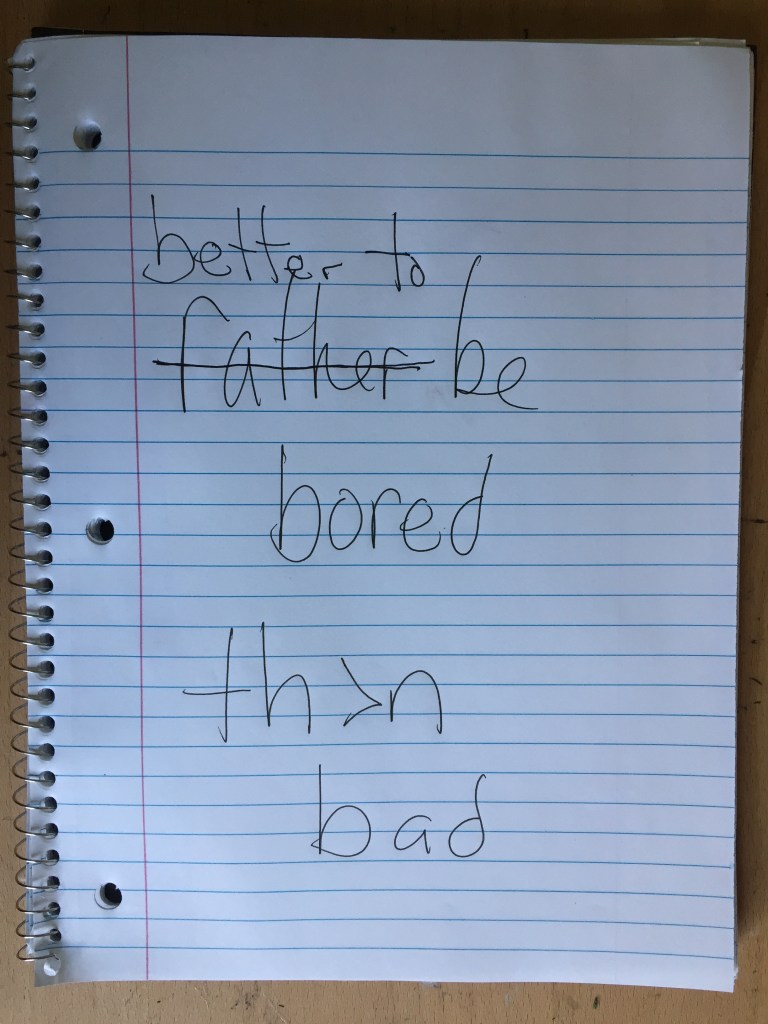 better to
father be
bored
th>n
bad